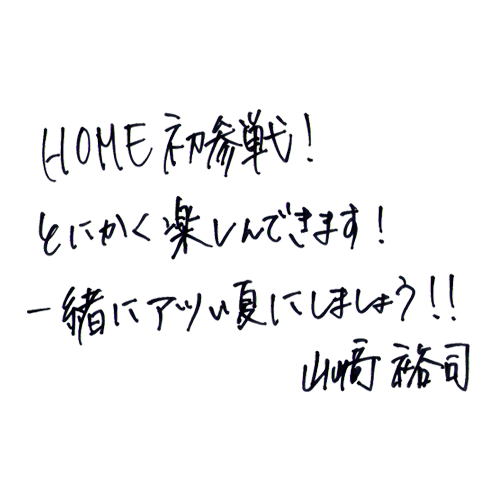 HOME初参戦!
とにかく楽しんできます!
一緒にアツい夏にしましょう!!
山﨑裕司